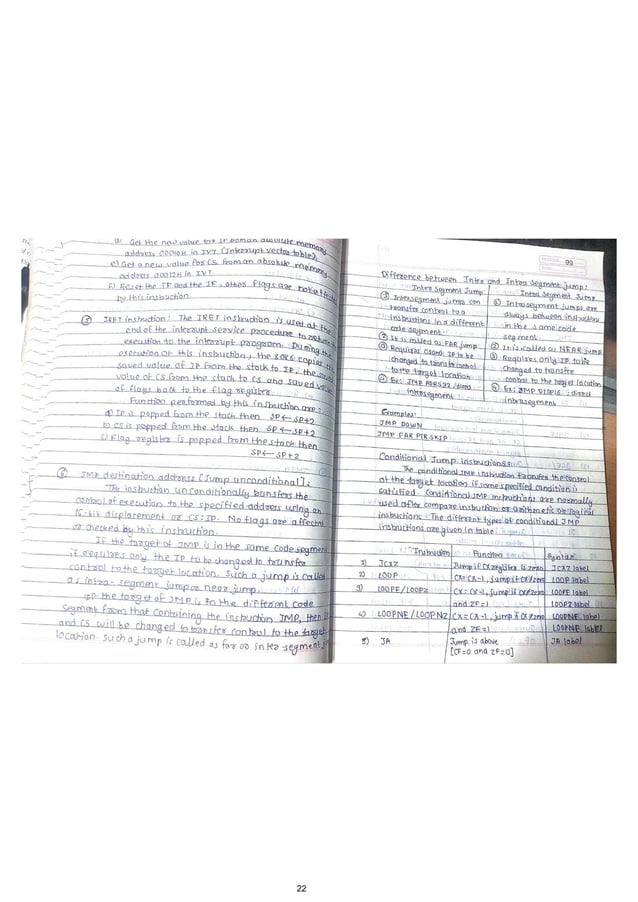 d) Get the new value for IP from an absolute memory
address 00010H in IVT (Interrupt vector table).
e) Get a new value for CS from an absolute memory
address 00012H in IVT.
f) Reset the TF and the IF, other flags are not affected
by this instruction.
IRET instruction: The IRET instruction is used at the
end of the interrupt service procedure to return the
execution to the interrupt program. During the
execution of this instruction, the 8086 copies the
saved value of IP from the stack to IP, the
value of CS from the stack to CS and saved value
of flags back to the flag register.
Function performed by this instruction are:
a) IP is popped from the stack then SP ← SP+2
b) CS is popped from the stack then SP ← SP+2
c) flag register is popped from the stack then
SP ← SP+2
JMP destination address [Jump unconditional]:
The instruction unconditionally transfers the
control of execution to the specified address using an
16-bit displacement or CS:IP. No flags are affected
or checked by this instruction.
If the target of JMP is in the same code segment
it requires only the IP to be changed to transfer
control to the target location. Such a jump is called
as intra-segment jump or near jump.
If the target of JMP is in the different code
segment from that containing the instruction JMP, then IP
and CS will be changed to transfer control to the target
location. Such a jump is called as far or inter segment
Difference between Inter and Intra Segment jump:
Inter Segment Jump Intra Segment Jump
① Intersegment jumps can ① Intrasegment jumps are
transfer control to a always between instructions
instructions in a different in the same code
code segment. segment.
② It is called as FAR jump ② It is called as NEAR jump
③ Requires CS and IP to be ③ Requires only IP to be
changed to transfer control changed to transfer
to the target location control to the target location
④ Ex: JMP ④ Ex: JMP
intersegment intrasegment
Examples:
JMP DOWN
JMP FAR PTR SKIP
Conditional Jump Instructions:
The conditional JMP instruction transfer the control
at the target location if some specified condition is
satisfied. Conditional JMP instructions are normally
used after compare instruction or arithmetic or logical
instruction. The different types of conditional JMP
instructions are given in table:
Instruction Function Syntax
1) JCXZ Jump if CX register is zero JCXZ label
2) LOOP CX=CX-1, jump if CX≠zero LOOP label
3) LOOPE/LOOPZ CX=CX-1, jump if CX≠zero LOOPE label
and ZF=1 LOOPZ label
4) LOOPNE/LOOPNZ CX=CX-1, jump if CX≠zero LOOPNE label
and ZF=1 LOOPNE label
5) JA Jump is above JA label
[CF=0 and ZF=0]
22